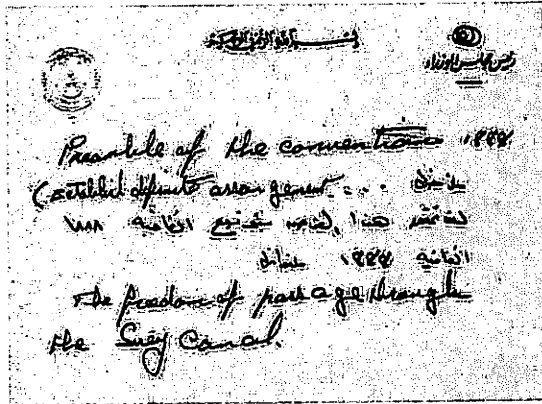 بسم الله الرحمن الرحيم
رئيس مجلس الوزراء
Preamble of the convention 1888
(establish definite arrangement . . .
هذا اتفاقية ١٨٨٨
اتفاقية 1888
The freedom of passage through
the Suez Canal.